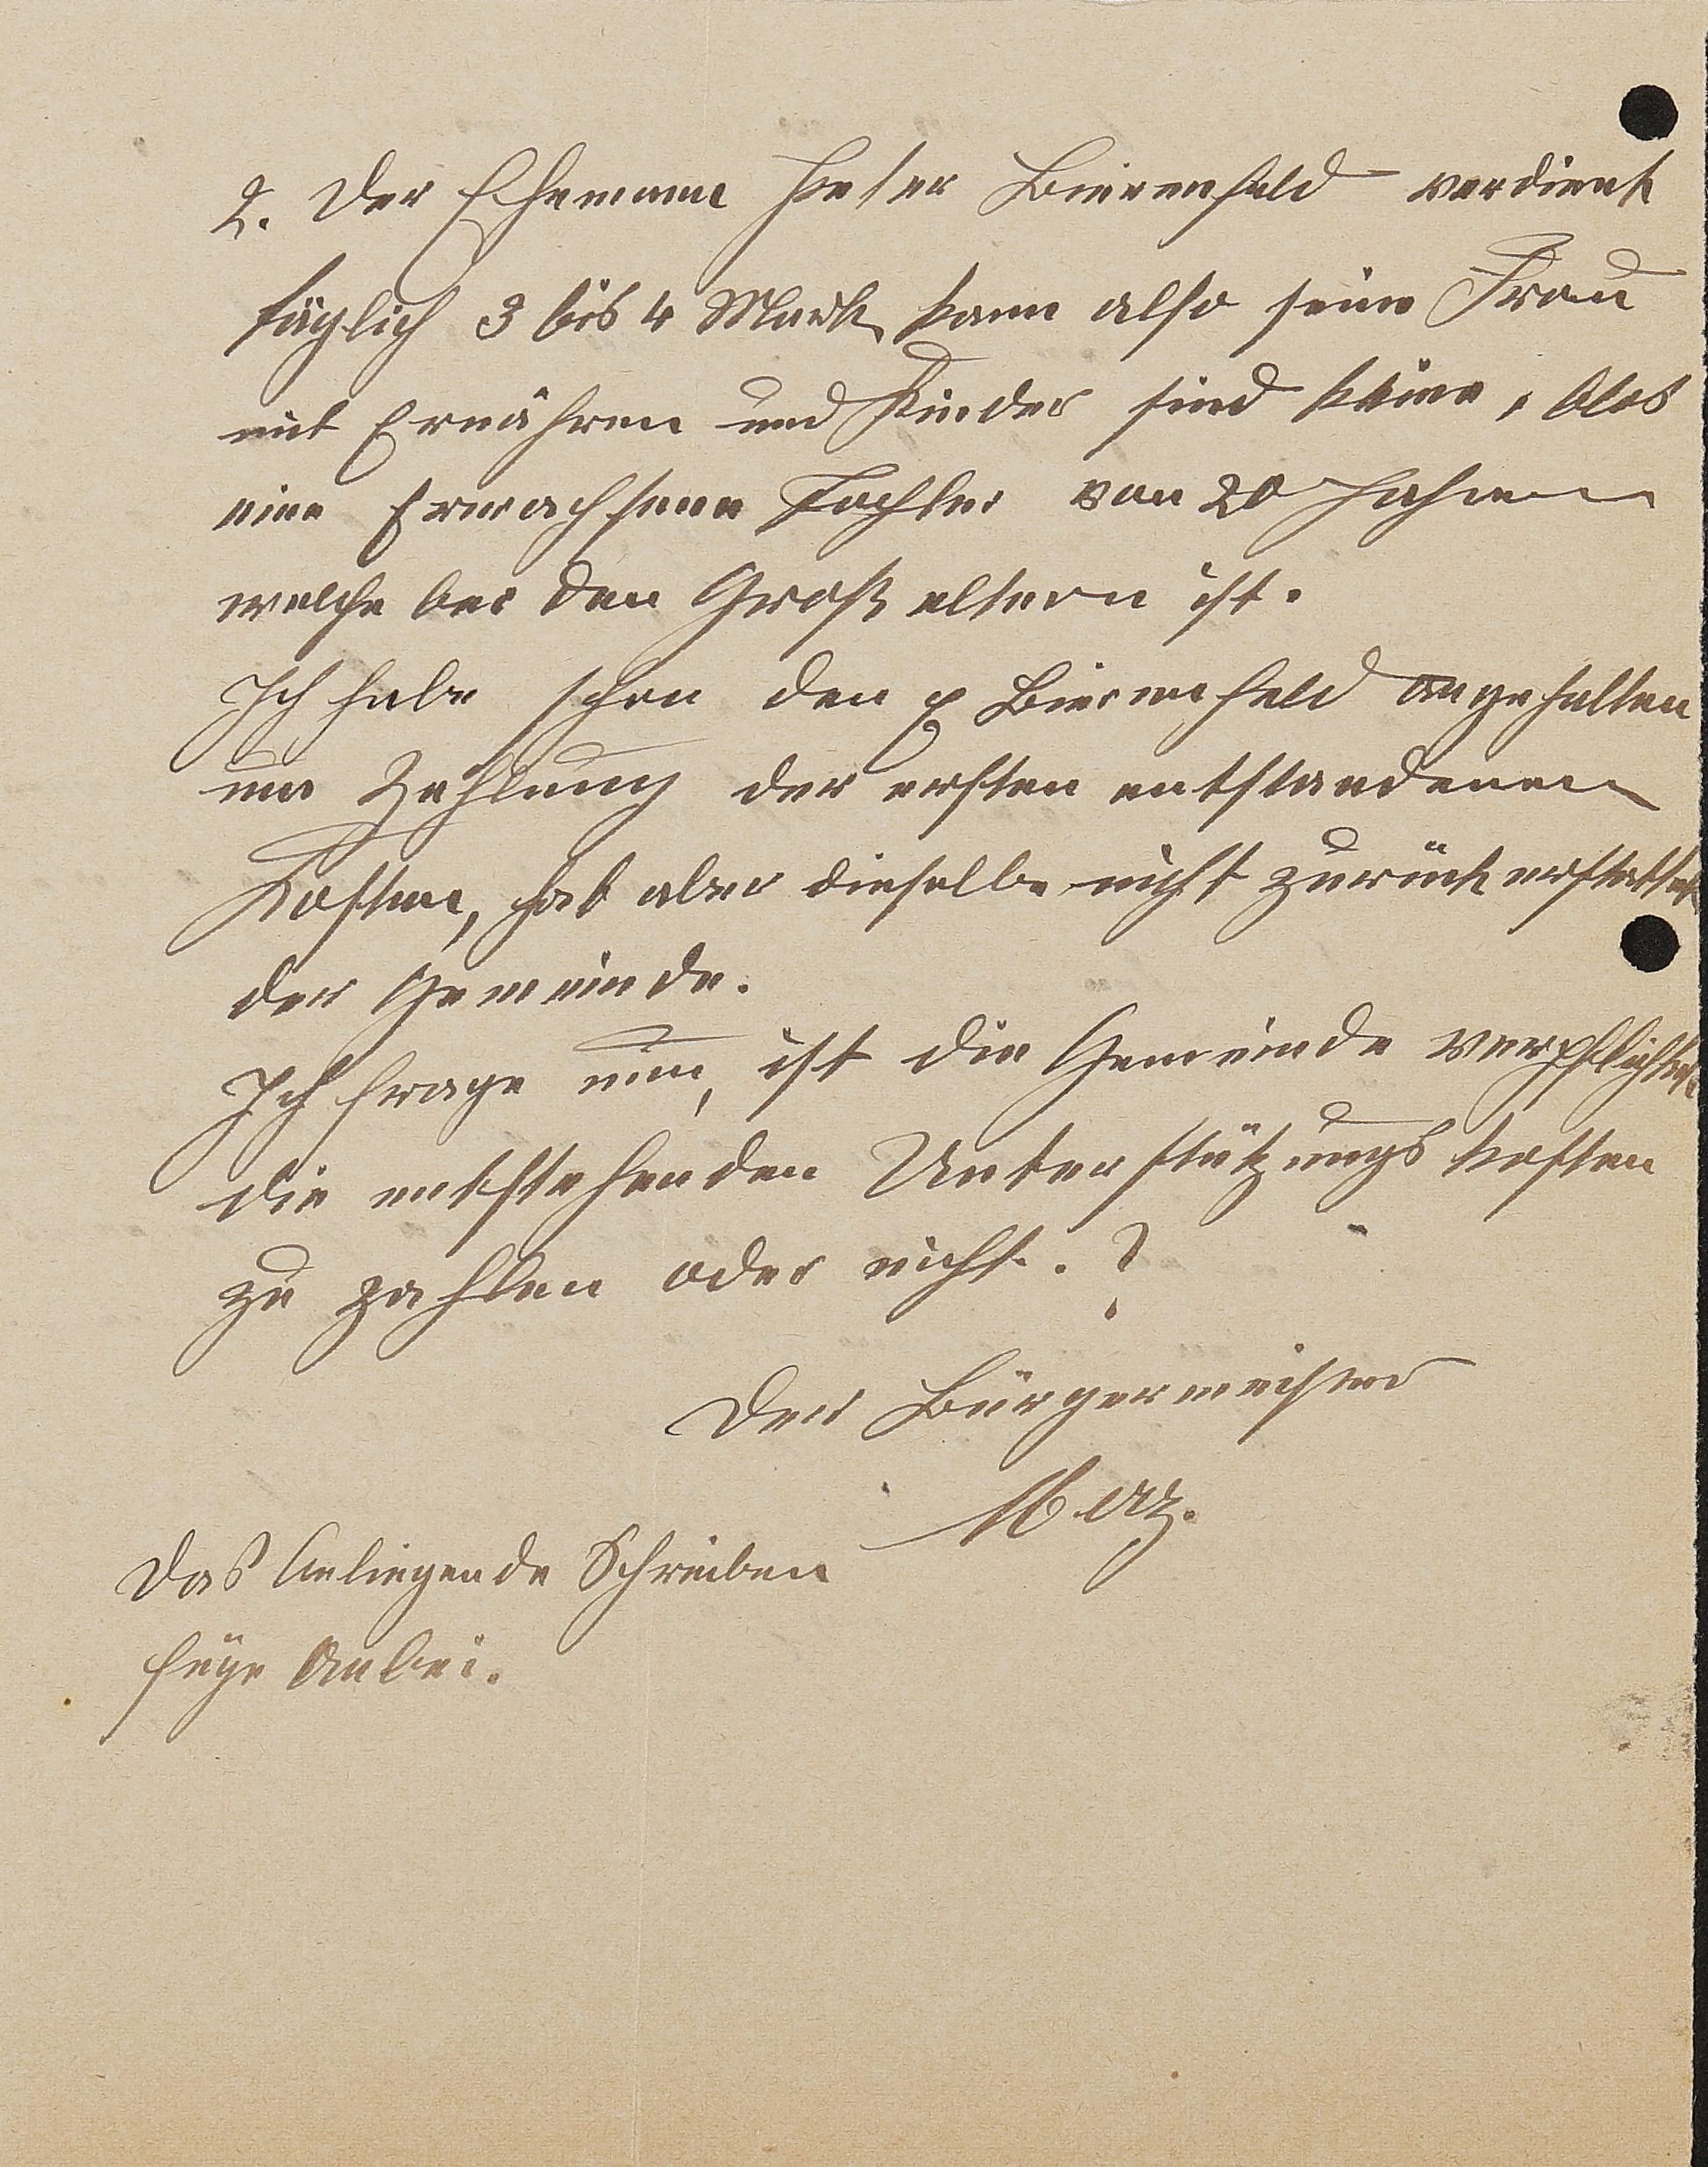 2. Der Ehemann Peter Birrenfeld verdient
täglich 3 bis 4 Mark kann also seine Frau
mit Ernähren und Kinder sind keine, blos
eine Erwachsene Tochter von 20 Jahren
welche bei den Großeltern ist.
Ich habe schon den p Birrenfeld angehalten
um Zahlung der ersten entstandenen
Kosten, hat aber dieselbe nicht zurück erstattet
der Gemeinde.
Ich frage nun, ist die Gemeinde verpflichtet
die entstehenden Unterstützungs kosten
zu zahlen oder nicht. ?
Der Bürgermeister
Das Anliegende Schreiben
füge Anbei.